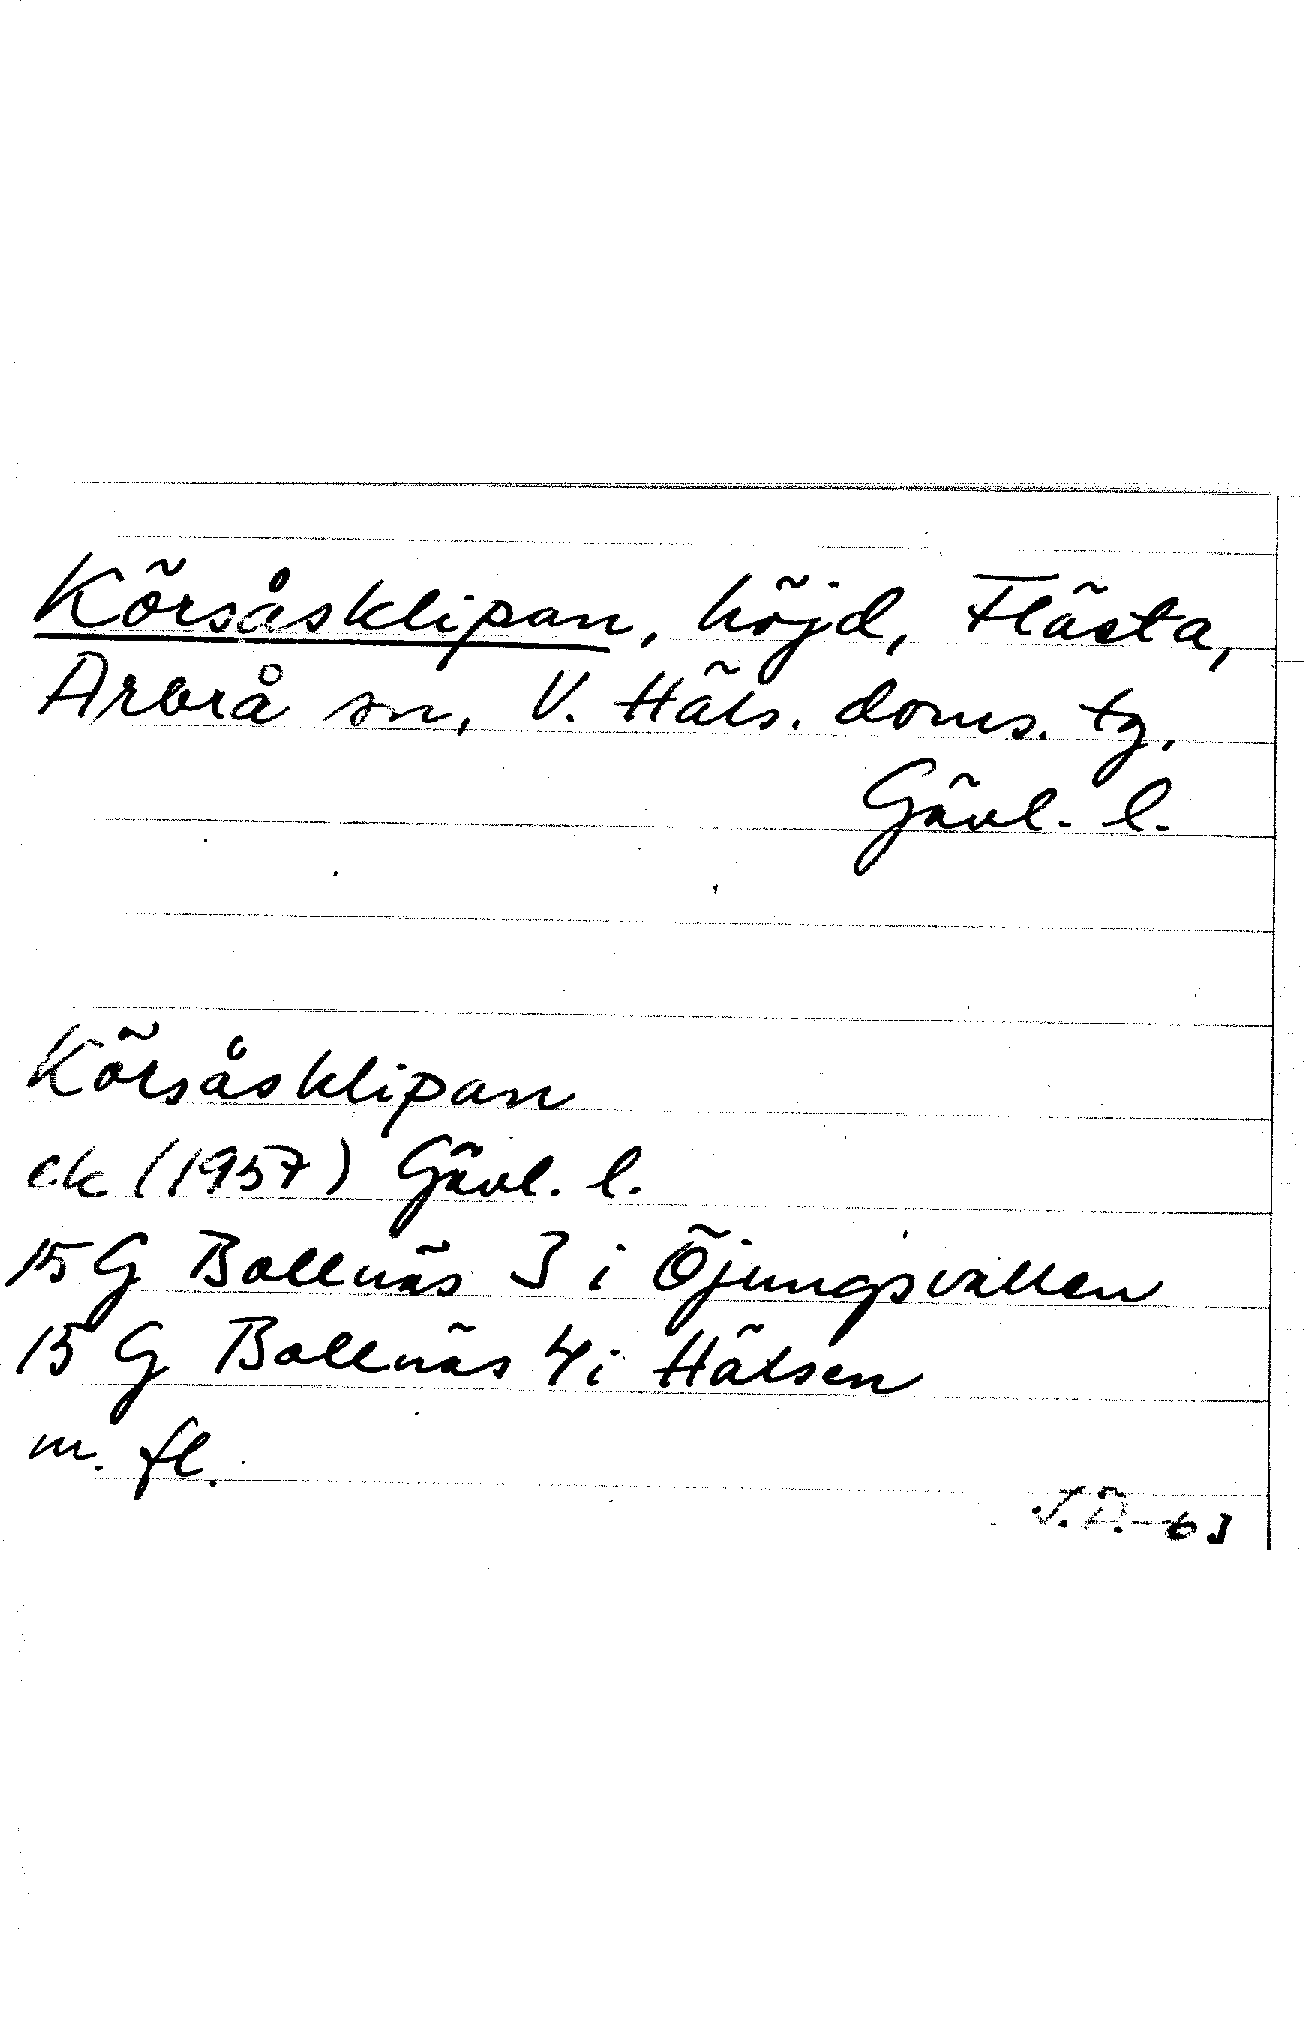 Körsåsklipan, höjd, Flästa,
Arbrå sn, V. Häls. doms. tg,
Gävl. l.
Körsåsklipan
ek (1957) Gävl. l.
15 G Bollnäs 3 i Öjungsvallen
15 G Bollnäs 4 i Hälsen
m. fl.
-63